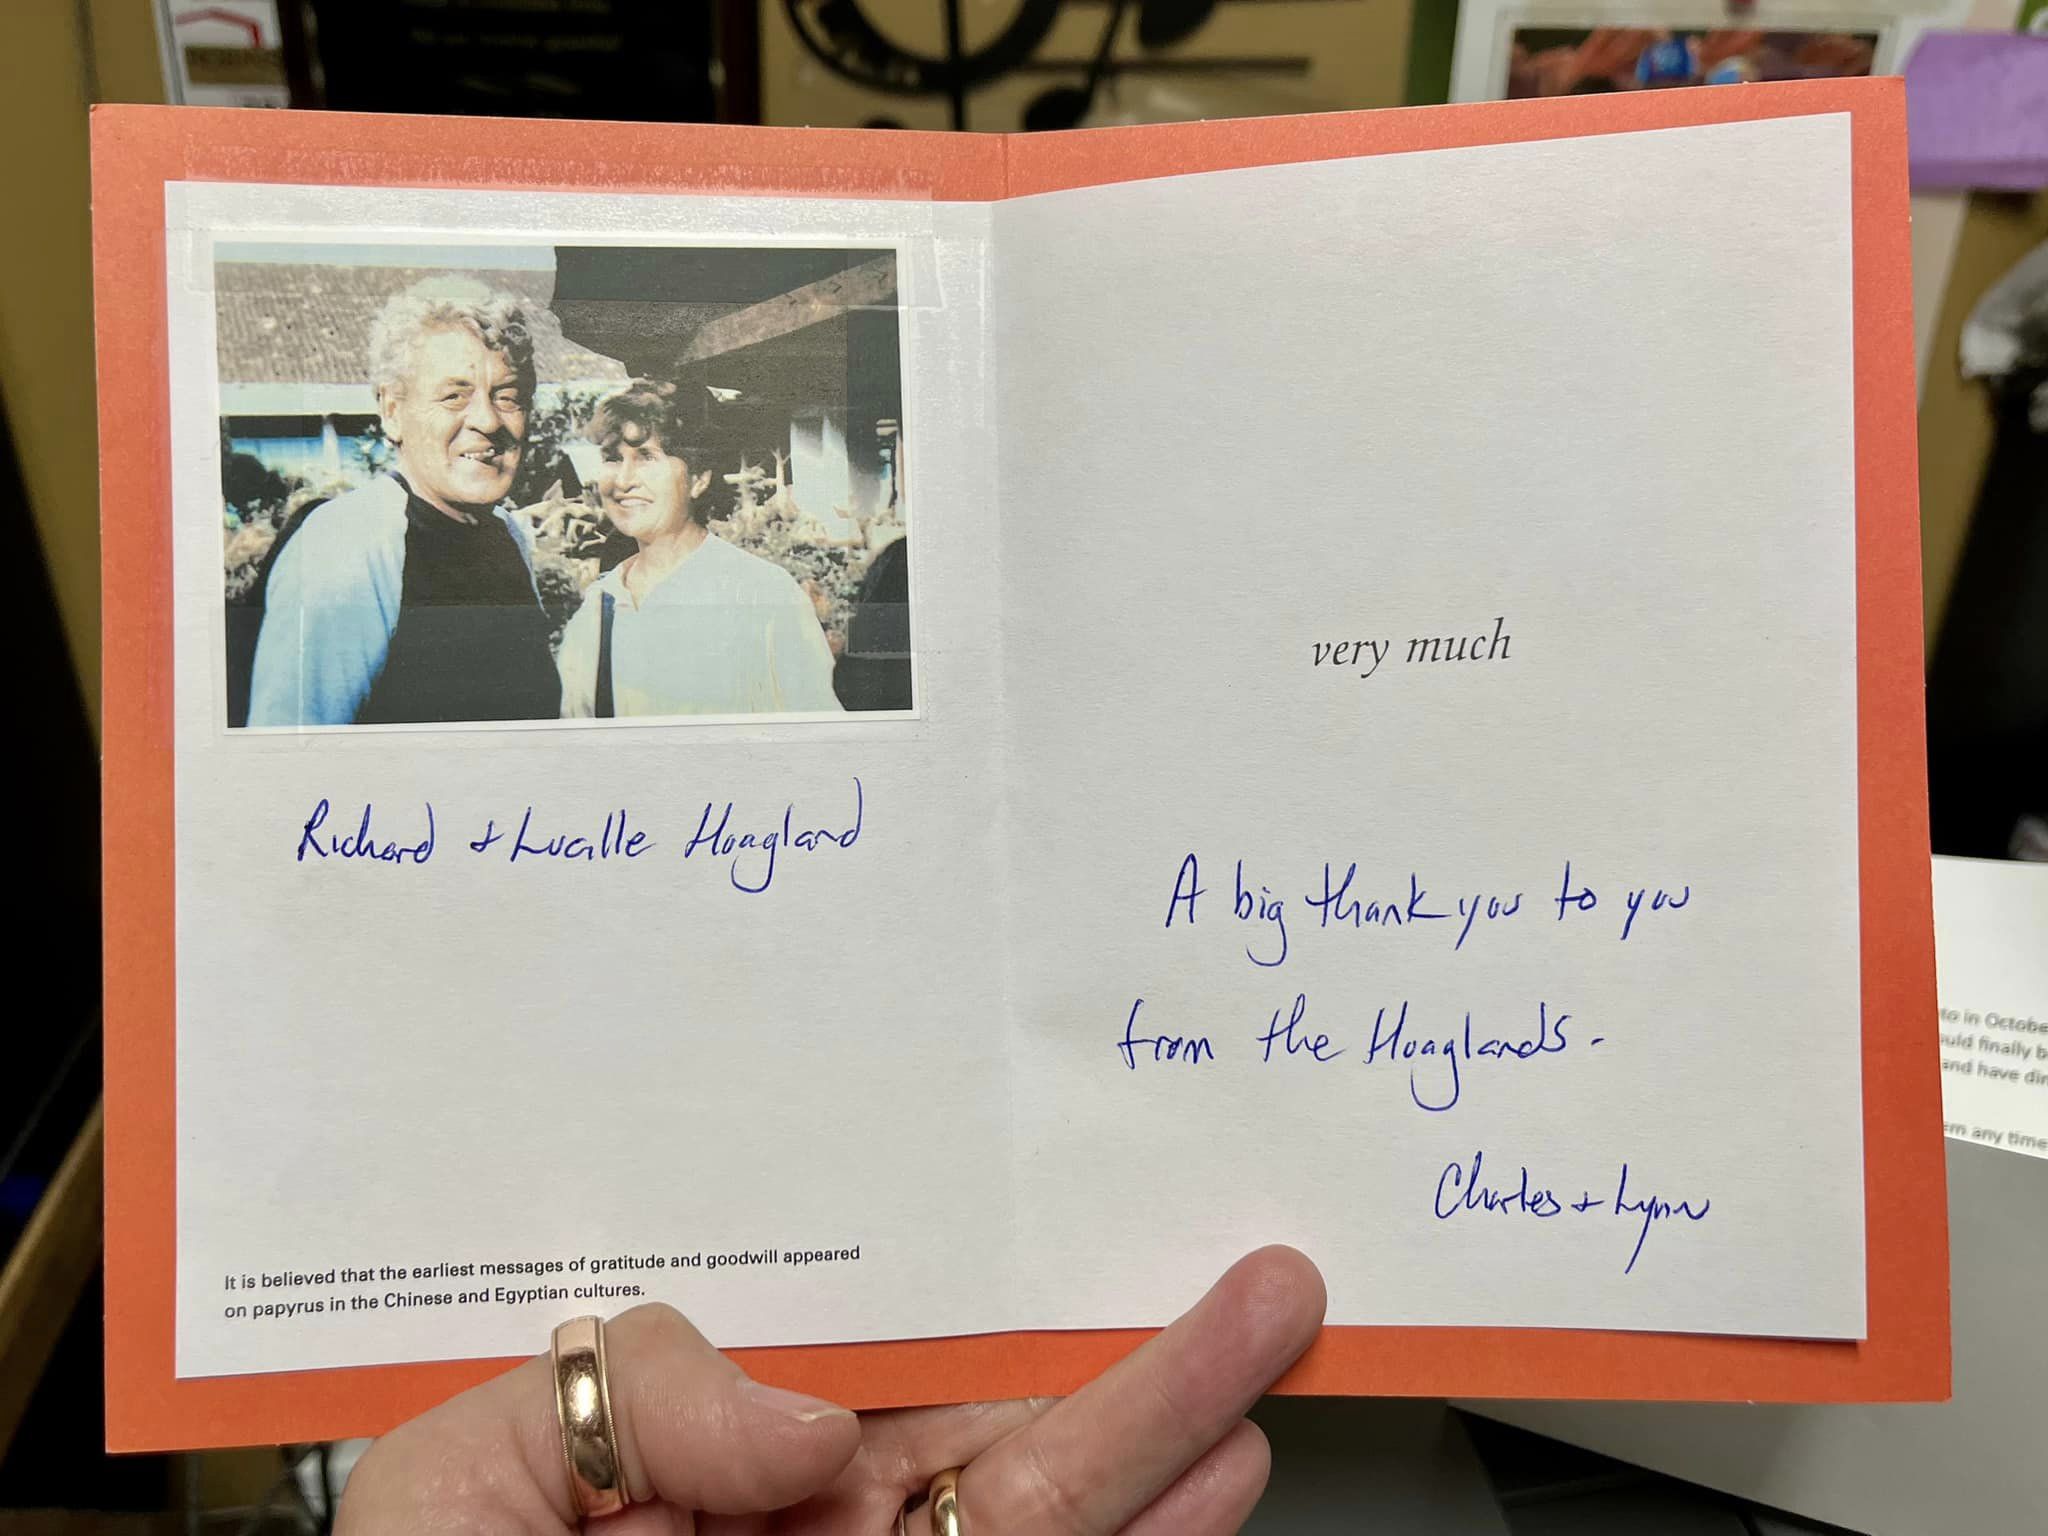 Richard + Lucille Hoagland
It is believed that the earliest messages of gratitude and goodwill appeared
on papyrus in the Chinese and Egyptian cultures.
very much
A big thank you to you
from the Hoaglands.
Charles + Lynn
to in Octobe
uld finally b
and have din
em any time